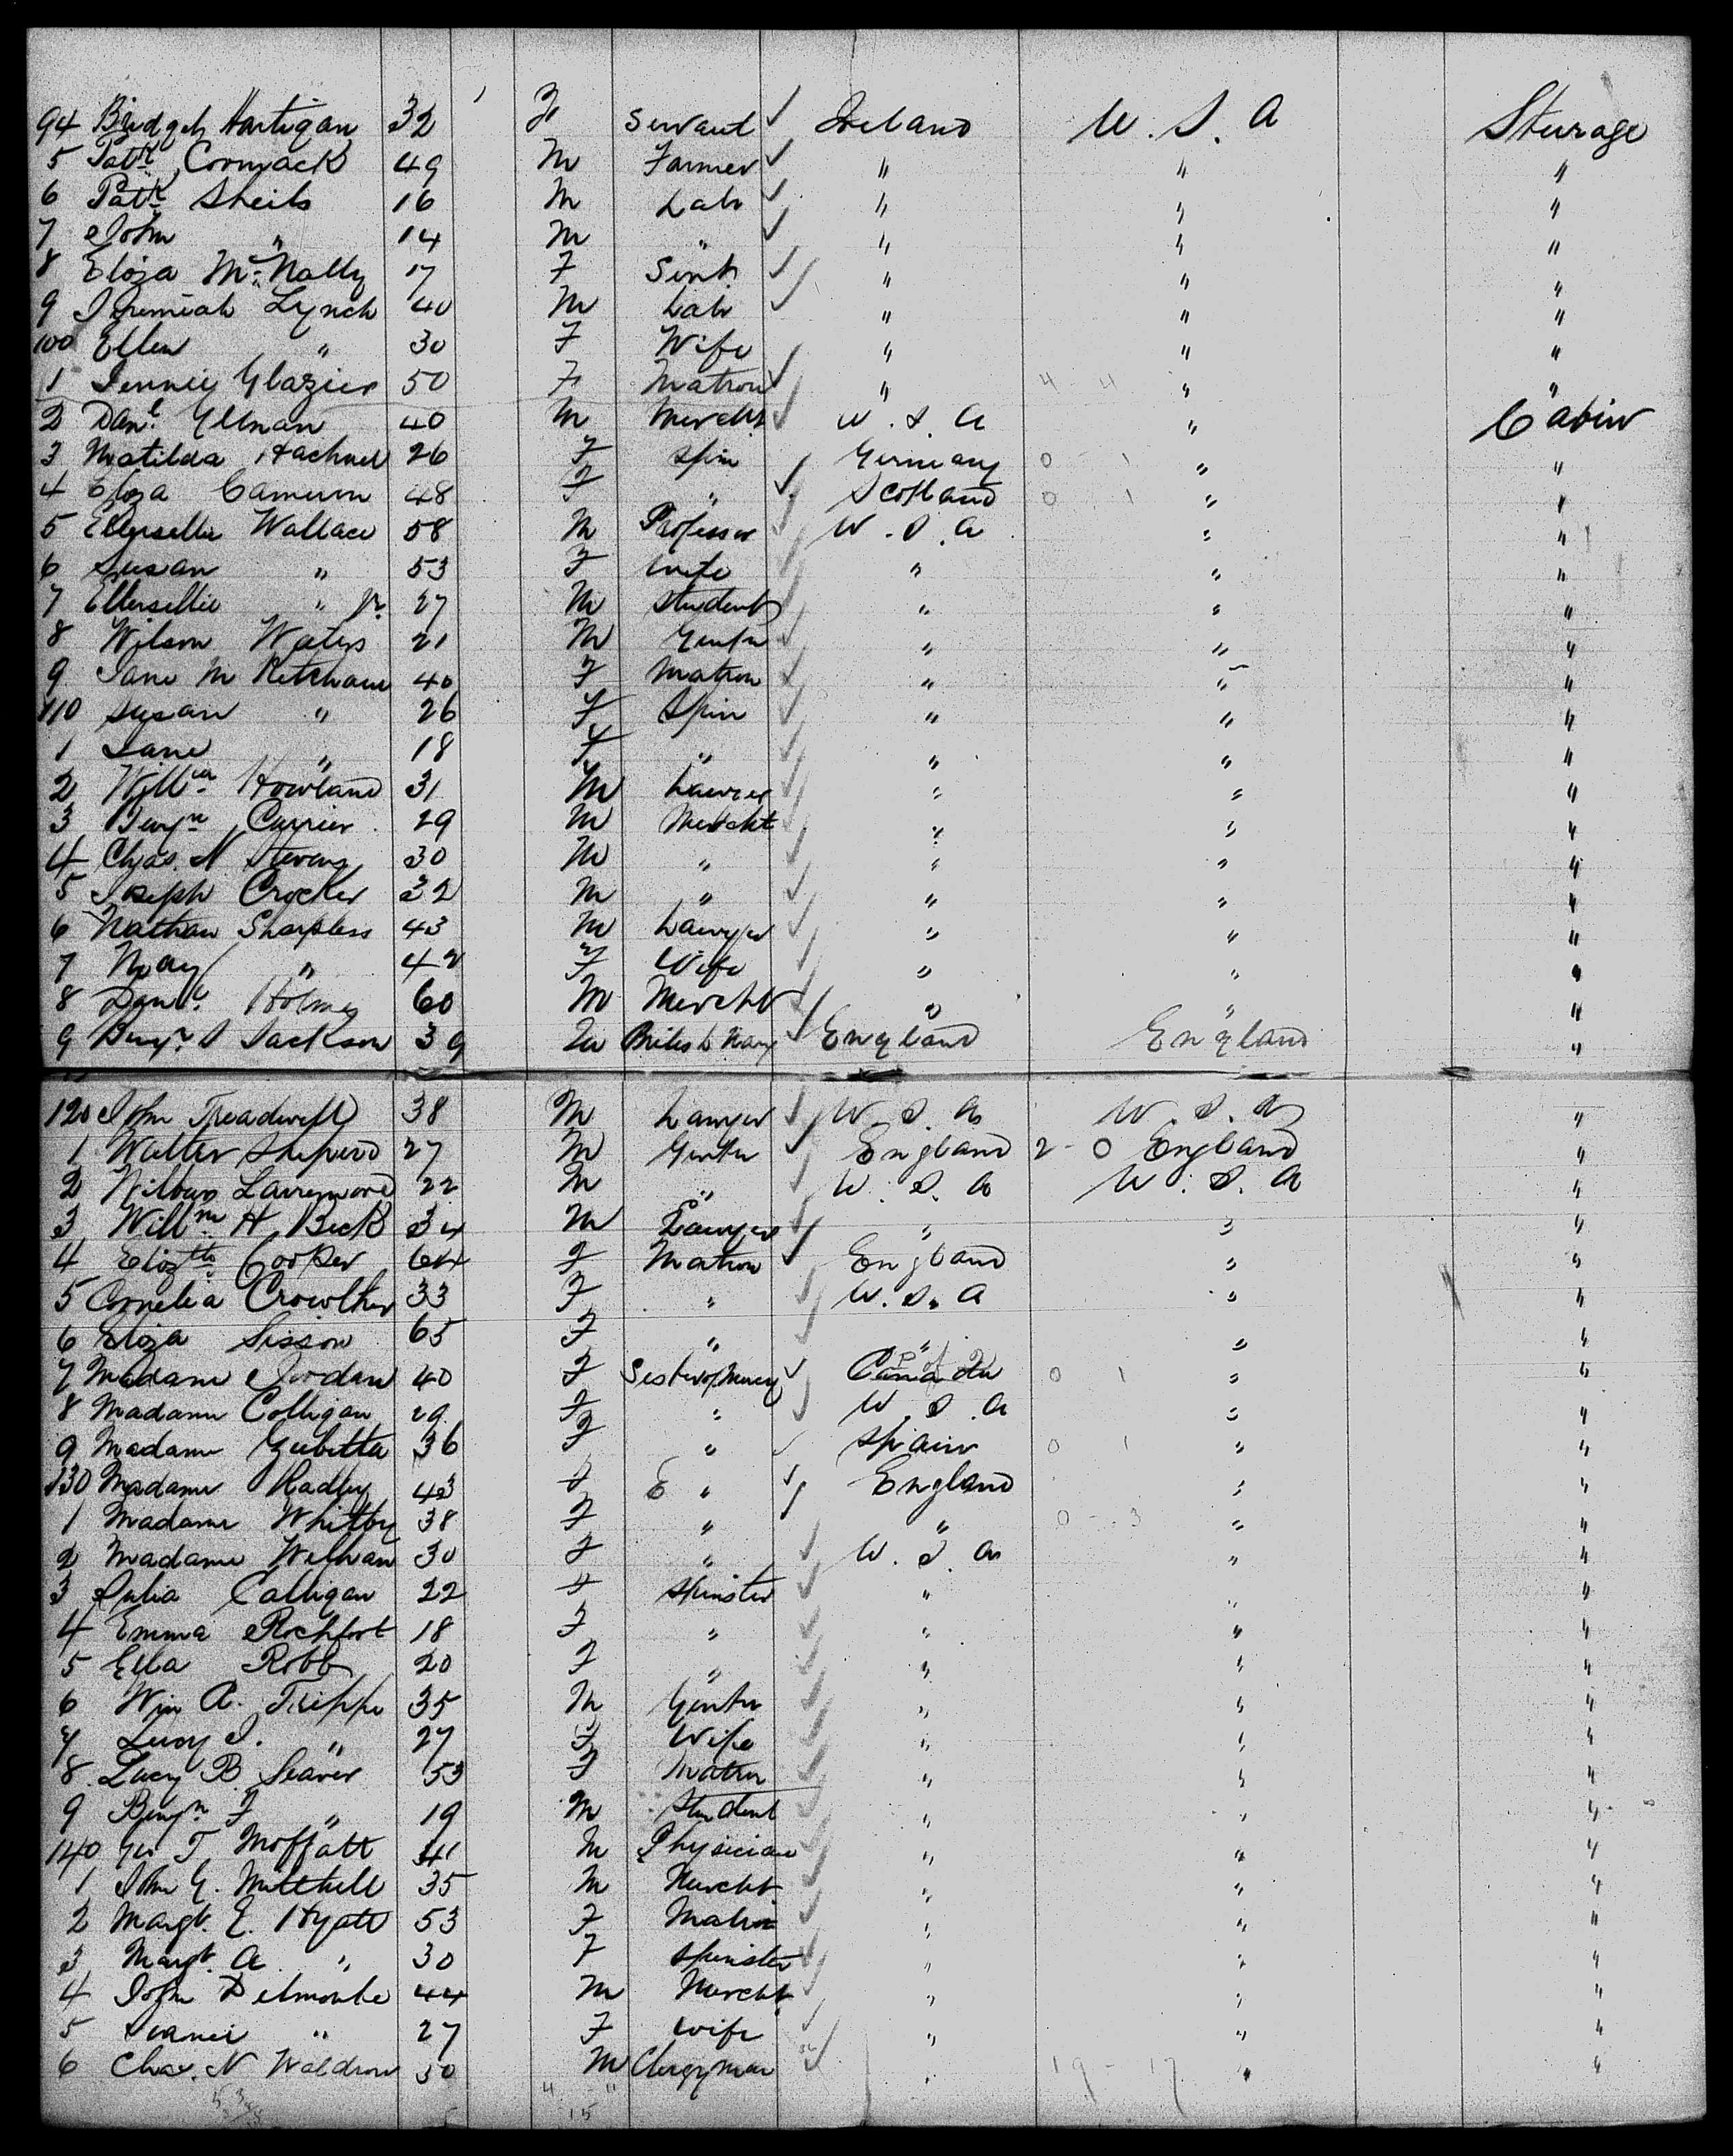 94 Bridget Hartigan 32 F Servant Ireland U. S. A Steerage
5 Patk Cormack 49 M Farmer " " "
6 Patk Sheils 16 M Labr " " "
7 John " 14 M " " " "
8 Eliza McNally 17 F Servt " " "
9 Jeremiah Lynch 40 M Labr " " "
100 Ellen " 30 F Wife " " "
1 Jennie Glazier 50 F Matron " 4 4 " "
2 Danl Ullman 40 M Mercht U. S. A " Cabin
3 Matilda 26 F Spin Germany 0 - 1 " "
4 Eliza Cameron 48 F " Scotland 0 1 " "
5 Ellerslie Wallace 58 M Professor U. S. A " "
6 Susan " 53 F Wife " " "
7 Ellerslie " Jr 27 M Student " " "
8 Wilson Waters 21 M Gentn " " "
9 Jane M Ketcham 40 F Matron " " "
110 Susan " 26 F Spin " " "
1 Jane " 18 F " " " "
2 Willm Howland 31 M Lawyer " " "
3 Benjn Currier 29 M Mercht " " "
4 Chas. N Stevens 30 M " " " "
5 Joseph Crocker 32 M " " " "
6 Nathan Sharpless 43 M Lawyer " " "
7 May " 42 F Wife " " "
8 Danl Holmes 60 M Mercht " " "
9 Benjn S Jackson 39 M British Navy England England "
120 John Treadwell 38 M Lawyer U. S. A U. S. A "
1 Walter Sheperd 27 M Gentn England 2 - 0 England "
2 Wilbur Larremore 22 M " U. S. A U. S. A "
3 Willm H. Beck 34 M Lawyer " " "
4 Elizth Cooper 64 F Matron England " "
5 Cornelia Crowther 33 F " U. S. A " "
6 Eliza Sisson 65 F " " " "
7 Madame Jordan 40 F Sister of Mercy Canada 0 1 " "
8 Madame Colligan 29 F " U. S. A " "
9 Madame 36 F " Spain 0 1 " "
130 Madame Hadley 43 F E " England " "
1 Madame Whitby 38 F " " 0 - 3 " "
2 Madame 30 F " U. S. A " "
3 Julia Calligan 22 F Spinster " " "
4 Emma Rochfort 18 F " " " "
5 Ella Robb 20 F " " " "
6 Wm A. Trippe 35 M Gentn " " "
7 Lucy J. " 27 F Wife " " "
8 Lucy B. Seaver 53 F Matrn " " "
9 Benjn F " 19 M Student " " "
140 Geo T Moffatt 41 M Physician " " "
1 John G. Mitchell 35 M Mercht " " "
2 Margt. E. Hyatt 53 F Matron " " "
3 Margt. A " 30 F Spinster " " "
4 John Delmonte 44 M Mercht " " "
5 " 27 F Wife " " "
6 Chas. N Waldron 30 M Clergyman " 19 - 17 " "